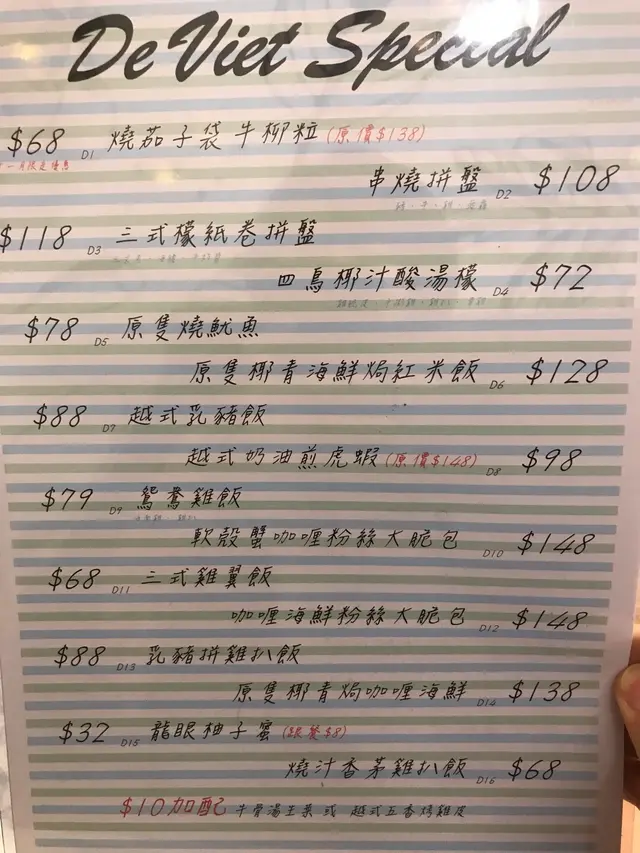 De Viet Special
$68 D1 燒茄子袋牛柳粒 (原價$138)
串燒拼盤 D2 $108
$118 D3 三式檬紙卷拼盤
四鳥椰汁酸湯檬 D4 $72
$78 D5 原隻燒魷魚
原隻椰青海鮮焗紅米飯 D6 $128
$88 D7 越式乳豬飯
越式奶油煎虎蝦 (原價$148) D8 $98
$79 D9 鴛鴦雞飯
軟殼蟹咖喱粉絲大脆包 D10 $148
$68 D11 三式雞翼飯
咖喱海鮮粉絲大脆包 D12 $148
$88 D13 乳豬拼雞扒飯
原隻椰青焗咖喱海鮮 D14 $138
$32 D15 龍眼柚子蜜 (跟餐$8)
燒汁香茅雞扒飯 D16 $68
$10加配 牛骨湯生菜 或 越式五香烤雞皮